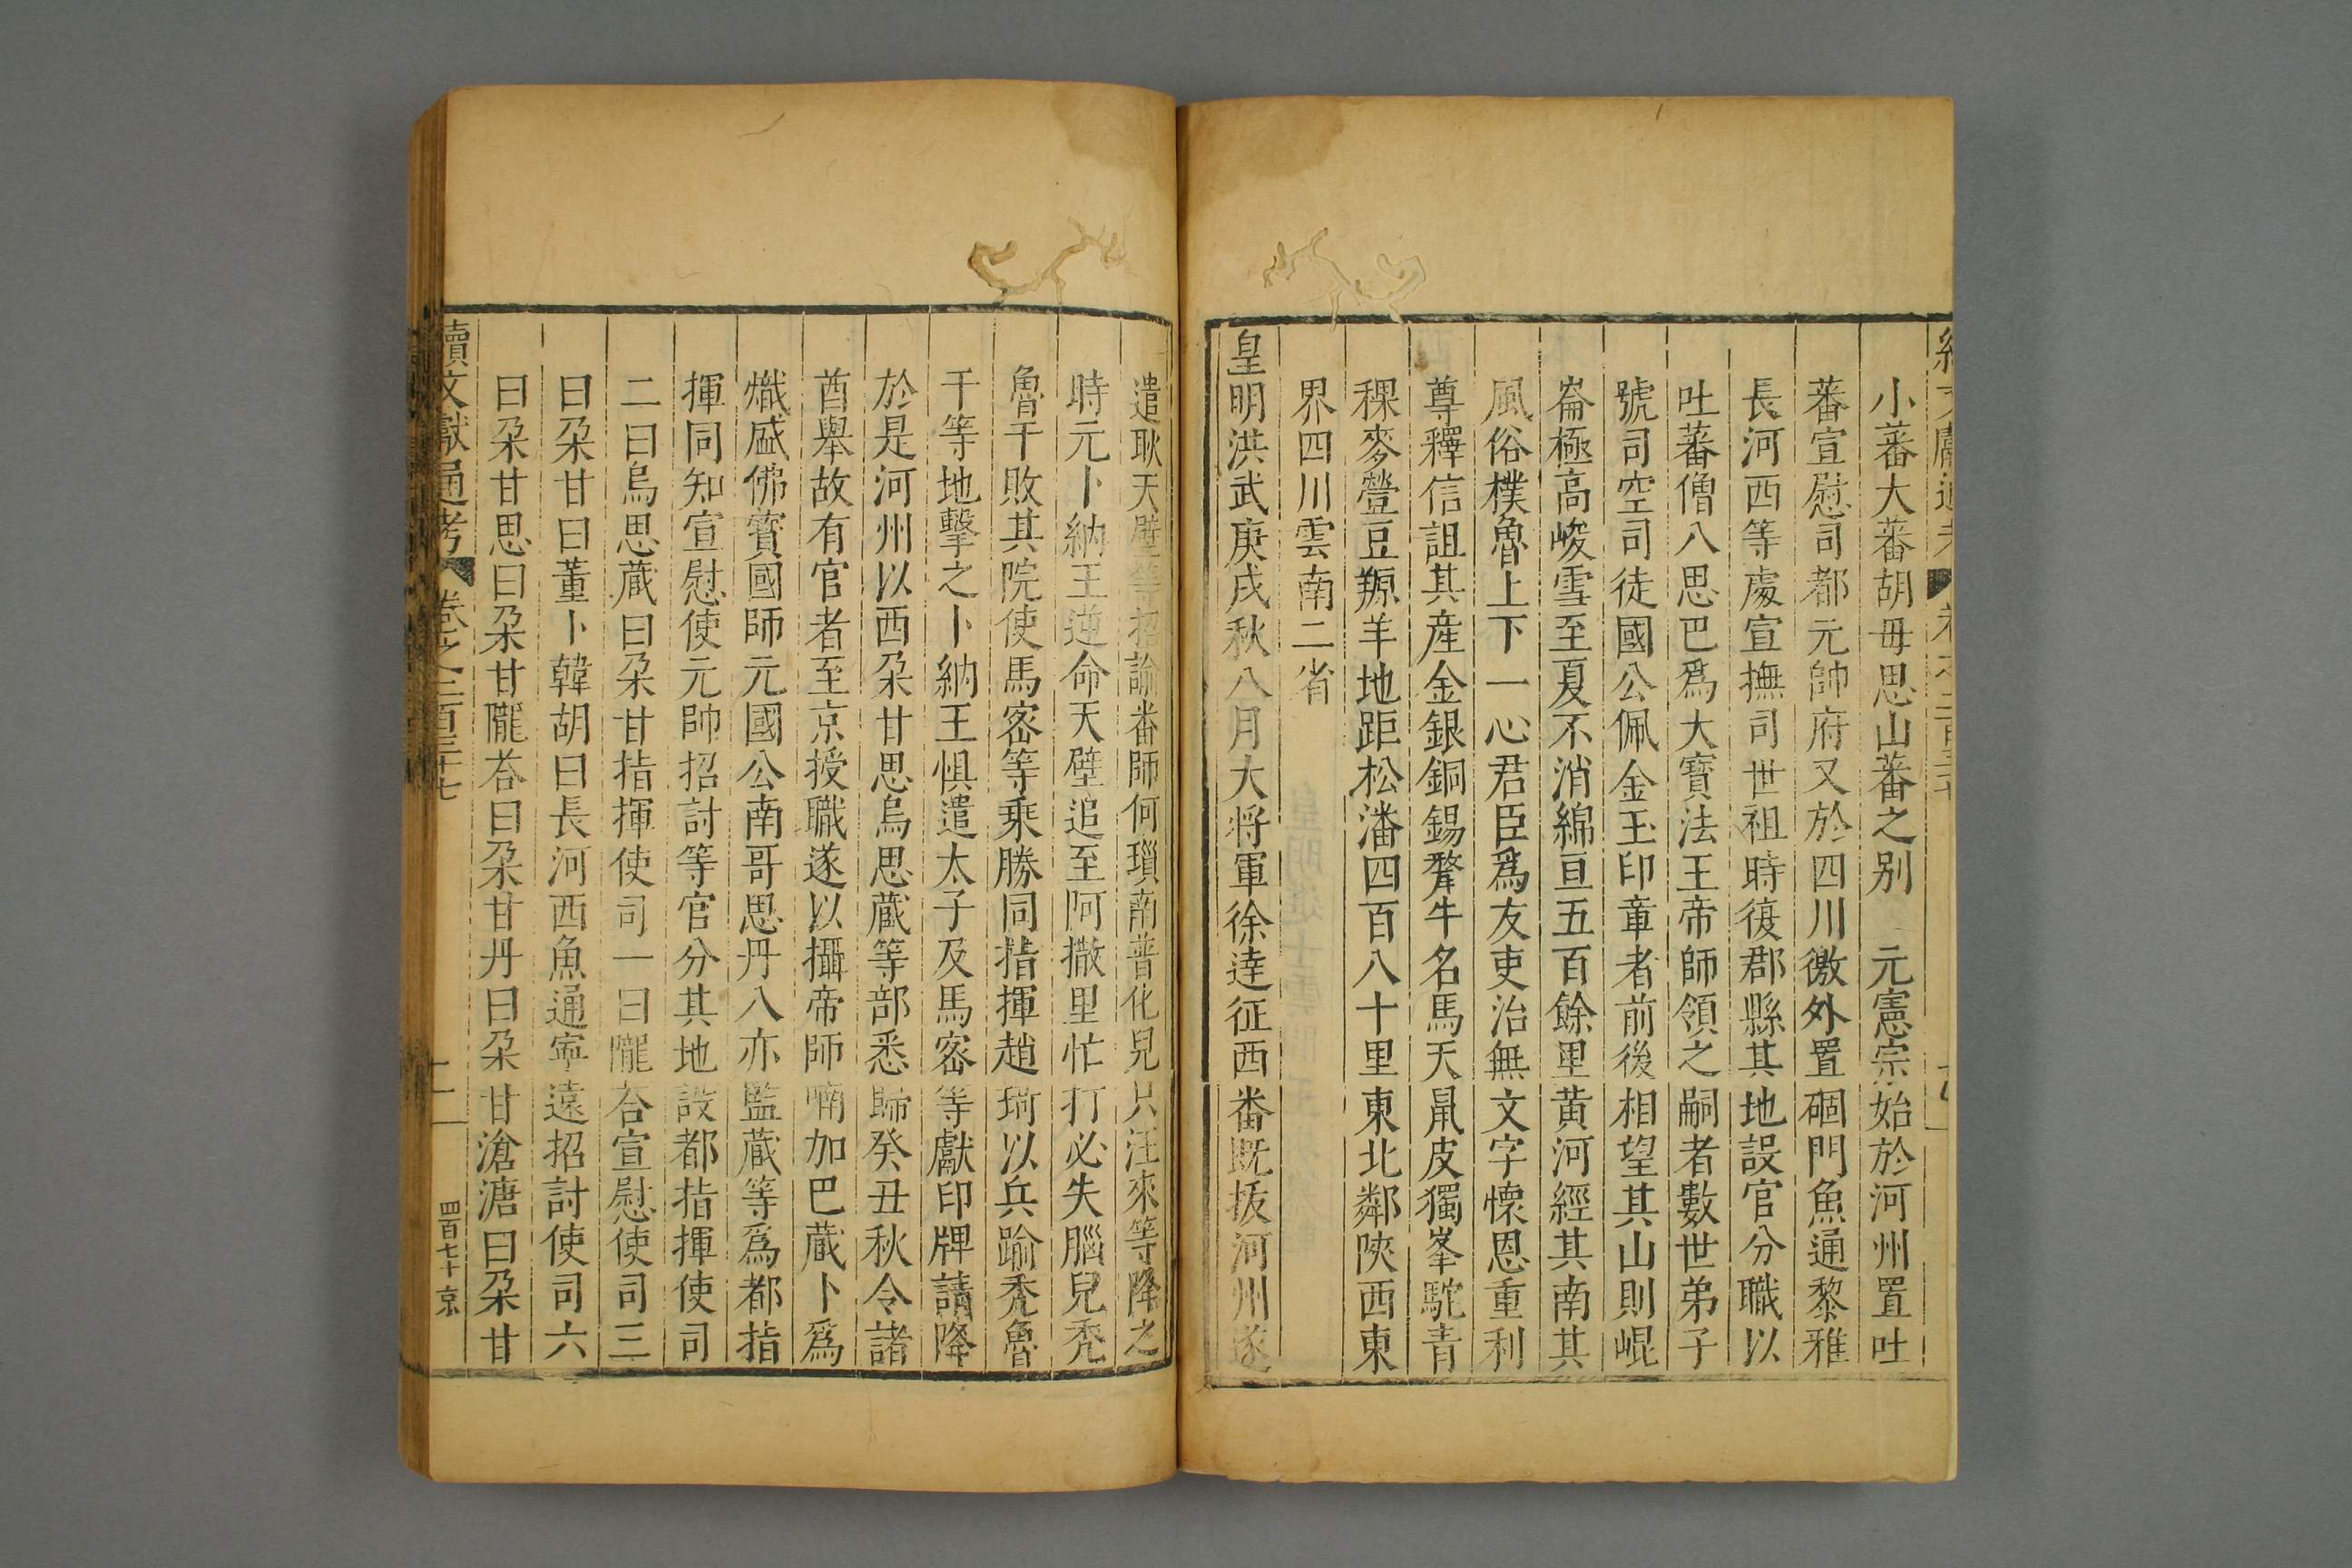 小蕃大蕃胡毋思山蕃之別 元憲宗始於河州置吐
蕃宣慰司都元帥府又於四川徼外置碉門魚通黎雅
長河西等處宣撫司世祖時復郡縣其地設官分職以
吐蕃僧八思巴爲大寶法王帝師領之嗣者數世弟子
號司空司徒國公佩金玉印章者前後相望其山則崐
崙極高峻雪至夏不消綿亘五百餘里黄河經其南其
風俗樸魯上下一心君臣爲友吏治無文字懷恩重利
尊釋信詛其產金銀銅錫犛牛名馬天鼠皮獨峯駝青
稞麥䝁豆羱羊地距松潘四百八十里東北鄰陝西東
界四川雲南二省
皇明洪武庚戌秋八月大将軍徐達征西番既拔河州遂
遣耿天璧等招諭番師何瑣南普化兒只汪來等降之
時元卜納王逆命天壁追至阿撒里忙打必失腦兒秃
魯干敗其院使馬宻等乗勝同指揮趙琦以兵踰秃魯
干等地擊之卜納王惧遣太子及馬宻等獻印牌請降
於是河州以西朶甘思烏思藏等部悉歸癸丑秋令諸
酋舉故有官者至京授職遂以攝帝師喃加巴藏卜爲
熾盛佛寳國師元國公南哥思丹八亦監藏等爲都指
揮同知宣慰使元帥招討等官分其地設都指揮使司
二曰烏思藏曰朶甘指揮使司一曰隴荅宣慰使司三
曰朶甘曰董卜韓胡曰長河西魚通寧遠招討使司六
曰朶甘思曰朶甘隴荅曰朶甘丹曰朶甘滄溏曰朶甘
續文獻通考 卷之二百三十七
四百七十 京